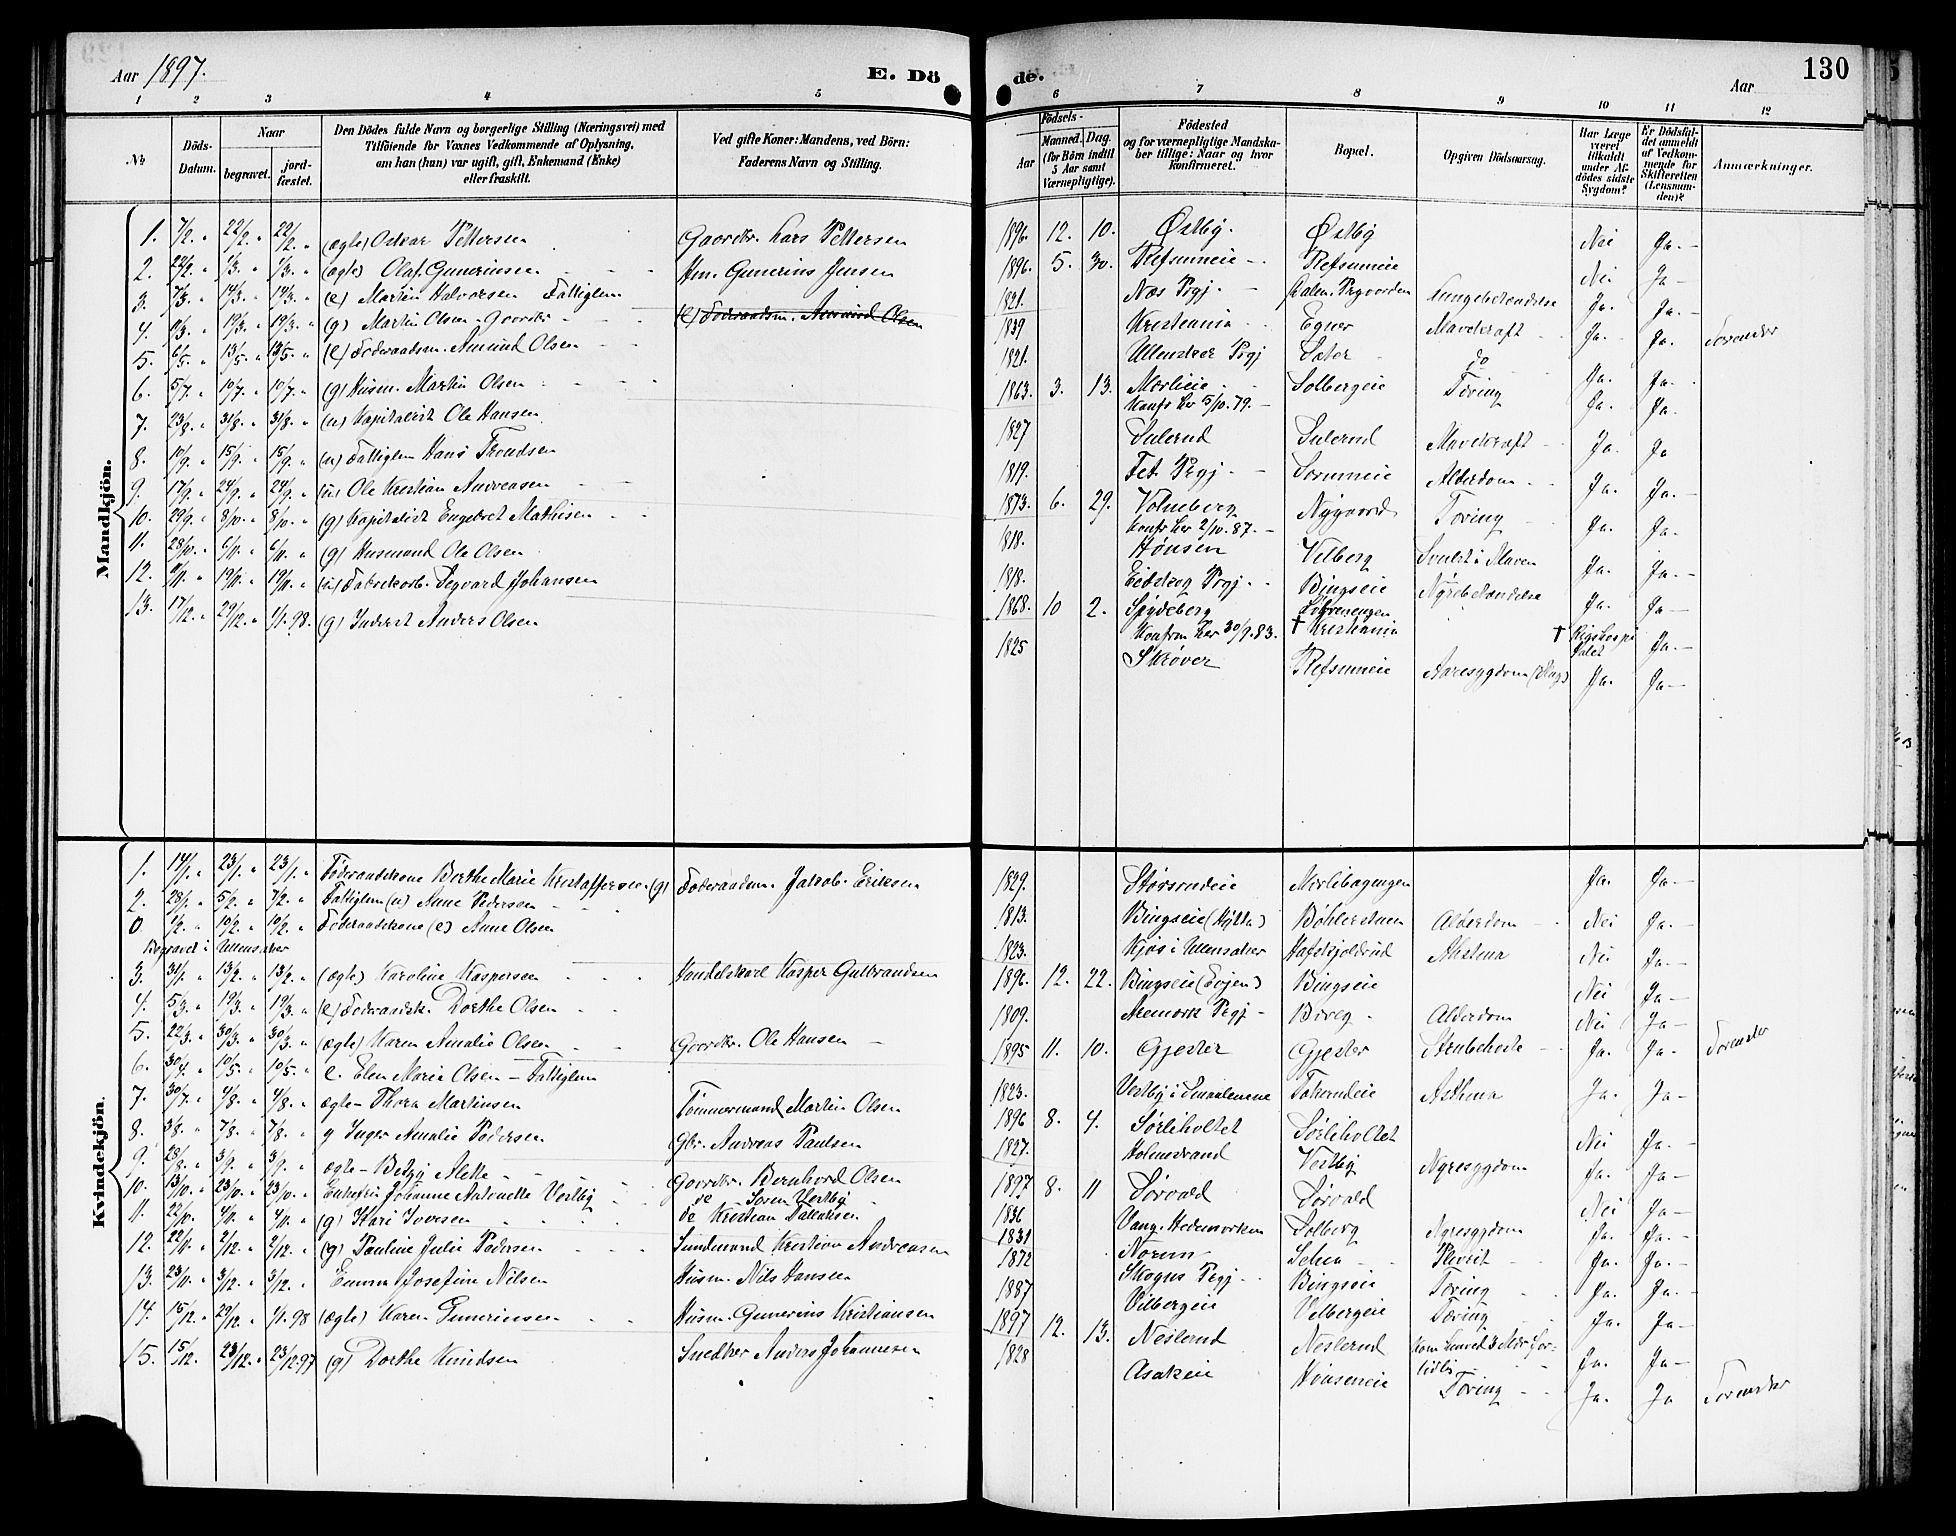 Aar 1897.
E. Dö
de.
Aar
130
1 2 3 4 5
6 7 8 9 10 11 12
No
Döds-Datum.
Naar
begravet.
jord-fæstet.
Den Dödes fulde Navn og borgerlige Stilling (Næringsvei) med
Tilföiende for Voxnes Vedkommende af Oplysning,
om han (hun) var ugift, gift, Enkemand (Enke)
eller fraskilt.
Ved gifte Koner: Mandens, ved Börn:
Faderens Navn og Stilling.
Födsels-
Aar
Maaned.
Dag.
(for Börn indtil
5 Aar samt
Værnepligtige).
Födested
og for værnepligtige Mandska-
ber tillige: Naar og hvor
konfirmeret.
Bopæl.
Opgiven Dödsaarsag.
Har Læge
været
tilkaldt
under Af-
dödes sidste
Sygdom?
Er Dödsfal-
det anmeldt
af Vedkom-
mende for
Skifteretten
(Lensman-
den)?
Anmærkninger.
Mandkjön.
1. 7/2. " 22/2. " 22/2. " (ægte) Oskar Pettersen Gaardbr. Lars Pettersen 1896. 12. 10. Østby. Østby Nei Ja.
2. 22/2. " 1/3. " 1/3. " (ægte) Olaf Gunerinsen Hm. Gunerius Jensen 1896. 5. 30. Refsumeie Refsumeie Nei Ja
3. 7/3. " 14/3. " 14/3. " (e) Martin Halvorsen Fattiglem (e) Föderaadsm. Amund Olsen 1821. Næs Prgj. Prgaarden Lungebetændelse Ja. Ja.
4. 11/3. " 19/3. " 19/3. " (g) Martin Olsen Gaardbr 1839 Kristiania Egner Mavekræft Ja. Ja. Torender
5. 6/5. " 13/5. " 13/5. " (e) Föderaadsm. Amund Olsen 1821. Ullensaker Prgj Sæter do Ja. Ja.
6. 5/7. " 10/7. " 10/7. " (g) Husm. Martin Olsen 1863. 3. 13. Morlieie Solbergeie Tæring Ja. Ja.
Konfr her 5/10. 79.
7. 23/8. " 31/8. " 31/8. " (u) Kapitalist Ole Hansen 1827 Sulerud Sulerud Mavekræft Ja. Ja
8. 10/9. " 15/9. " 15/9. " (u) Fattiglem Hans Trondsen 1819. Fet Prgj. Sorumeie Alderdom Ja. Ja.
9. 17/9. " 24/9. " 24/9. " (u) Ole Kristian Andreasen 1873. 6. 29. Volneberg Nygaard Tæring Ja. Ja.
Konfr her 2/10. 87.
10. 29/9. " 8/10. " 8/10. " (g) Kapitalist Engebret Mathisen 1818. Hønsen Vilberg Svulst i Maven Ja. Ja.
11. 28/10. " 6/11. " 6/11. " (g) Husmand Ole Olsen 1818. Eidskog Prgj. Bingseie Nyrebetændelse Ja. Ja
12. 11/11. " 19/11. " 19/11. " (u) Fabrikarb. Sigvard Johansen 1868. 10 2. Spydeberg Løvenengen
Konfrm her 30/9. 83. † Kristiania † Rigshospitalet Ja.
13. 17/12. " 29/12. " 1/1. 98. (g) Inderst Anders Olsen 1825 Skrøver Refsumeie Aaresygdom (Slag) Ja. Ja
Kvindekjön.
1. 14/1. " 23/1. " 23/1. " Föderaadskone Berthe Marie Kristoffersen (g) Föderaadsm. Jakob Eriksen 1829. Størsrudeie Morlibagengen Ja. Ja.
2. 28/1. " 5/2. " 7/2. " Fattiglem (u) Anne Pedersen 1813. Bingseie (Hytta) Bøhlerstuen Alderdom Nei Ja.
0 1/2. " 10/2. " 10/2. " Föderaadskone (e) Anne Olsen 1823. Kjøs i Ullensaker Hafskjoldrud Asthma Nei Ja.
Begravet i Ullensaker
3. 31/1. " 13/2. " 13/2. " (ægte) Karoline Kaspersen Handelskarl Kasper Gulbrandsen 1896. 12. 22. Bingseie (Evjen) Bingseie Nei Ja
4. 5/3. " 19/3. " 19/3. " (e) Föderaadsk. Dorthe Olsen 1809. Aremark Prgj Alderdom Nei Ja
5. 22/3. " 30/3. " 30/3. " (ægte) Karen Amalie Olsen Gaardbr. Ole Hansen 1895 11. 10. Gjester Gjester Strubehoste Ja. Ja. Torender
6. 30/4. " 10/5. " 10/5. " e. Elen Marie Olsen Fattiglem 1823. Vestby i Smaalenene Asthma Ja. Ja
7. 30/7. " 4/8. " 4/8. " ægte Thora Martinsen Tømmermand Martin Olsen 1896 8. 4. Sørliholtet Sørliholtet Nei Ja.
8. 3/8. " 7/8. " 7/8. " g Inger Amalie Pedersen Gbr. Andreas Paulsen 1827. Holmestrand Vestby Nyresygdom Ja. Ja
9. 28/8. " 3/9. " 3/9. " ægte Betzy Alette Gaardbr. Bernhard Olsen 1897 8. 11 Sørvald Sørvald Nei Ja
10. 13/10. " 23/10. " 23/10. " Enkefru Johanne Antonette Vestby do Søren Vestby 1836 Vang. Hedemarken Solberg Nyresygdom Ja. Ja.
11. 22/10. " 4/11. " 4/11. " (g) Kari Iversen do Kristian 1831 Norum Plevrit Ja. Ja.
12. 22/11. " 2/12. " 2/12. " (g) Pauline Julie Pedersen Sundmand Kristian Andreasen 1872 Skogns Prgj Bingseie Tæring Ja. Ja.
13. 23/11. " 3/12. " 3/12. " Emma Josefine Nilsen Husm. Nils Hansen 1887 Vilbergeie Velbergeie Tæring Ja. Ja
14. 15/12. " 29/12. " 1/1 98 (ægte) Karen Gunerinsen Husm. Gunerius Kristiansen 1897 12. 13. Neslerud Neslerud Kom 3 Mdr for-
tidlig Ja. Ja
15. 15/12. 23/12. " 23/12 97 (g) Dorthe Knudsen Snedker Anders Johannesen 1828 Asakeie Hønseneie Tæring Ja. Ja Torender